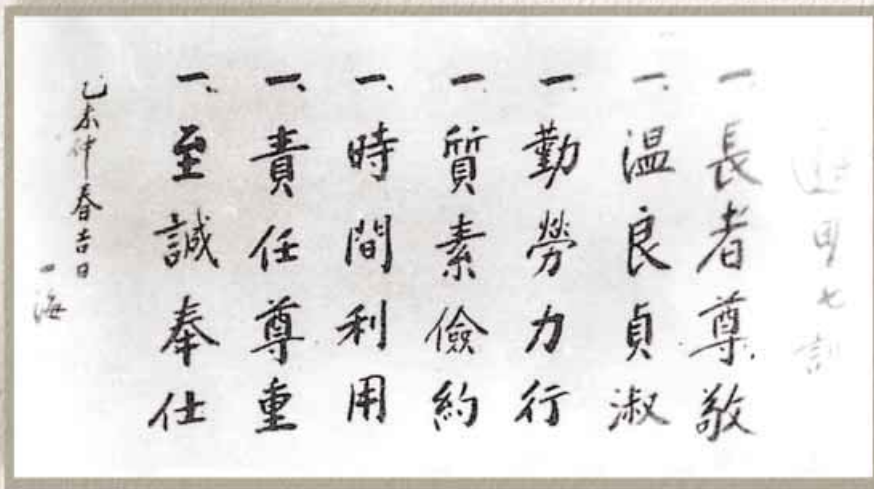 一、長者尊敬
一、温良貞淑
一、勤勞力行
一、質素儉約
一、時間利用
一、責任尊重
一、至誠奉仕
乙未仲春吉日
一海